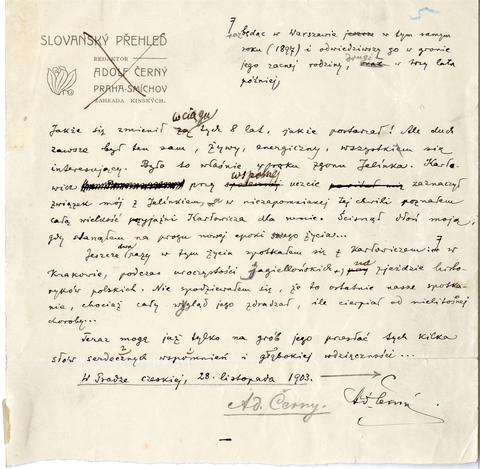 SLOVANSKÝ PŘEHLED
REDAKTOR
ADOLF ČERNÝ
PRAHA-SMÍCHOV
ZAHRADA KINSKÝCH.
będąc w Warszawie jeszcze w tym samym
roku (1897) i odwiedziwszy go w gronie
jego zacnej rodziny, drugi w trzy lata
później,
w ciągu
Jakże się zmienił za tych 8 lat, jakże postarzał! Ale duch
zawsze był ten sam, żywy, energiczny, wszystkiem się
interesujący. Było to właśnie w roku zgonu Jelinka. Karło-
wspólnej
wicz przy uczcie zaznaczył
związek mój z Jelinkiem, w niezapomnianej tej chwili poznałem
całą wielkość przyjaźni Karłowicza dla mnie. Ścisnął dłoń moją,
gdy stanąłem na progu nowej epoki życia...
dwa
Jeszcze razy w tym życiu spotkałem się z Karłowiczem w
na
Krakowie, podczas uroczystości Jagiellońskich, zjeździe histo-
ryków polskich. Nie spodziewałem się, że to ostatnie nasze spotka-
nie, chociaż cały wygląd jego zdradzał, ile cierpiał od nielitośnej
choroby...
Teraz mogę już tylko na grób jego przesłać tych kilka
słów serdecznych wspomnień i głębokiej wdzięczności...
W Pradze czeskiej, 28. listopada 1903.
Ad. Černy.
Ad. Černý